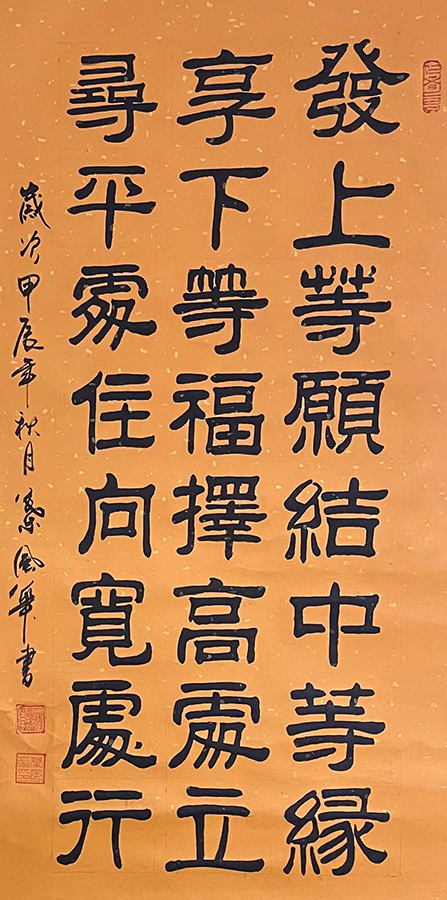 發上等願結中等緣
享下等福擇高處立
尋平處住向寬處行
歲次甲辰年秋月風華書